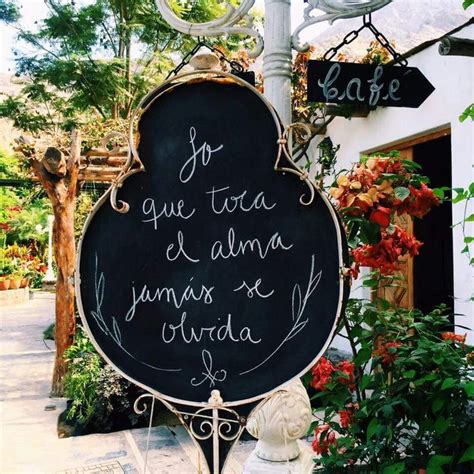 Café
Lo
que toca
el alma
jamás se
olvida